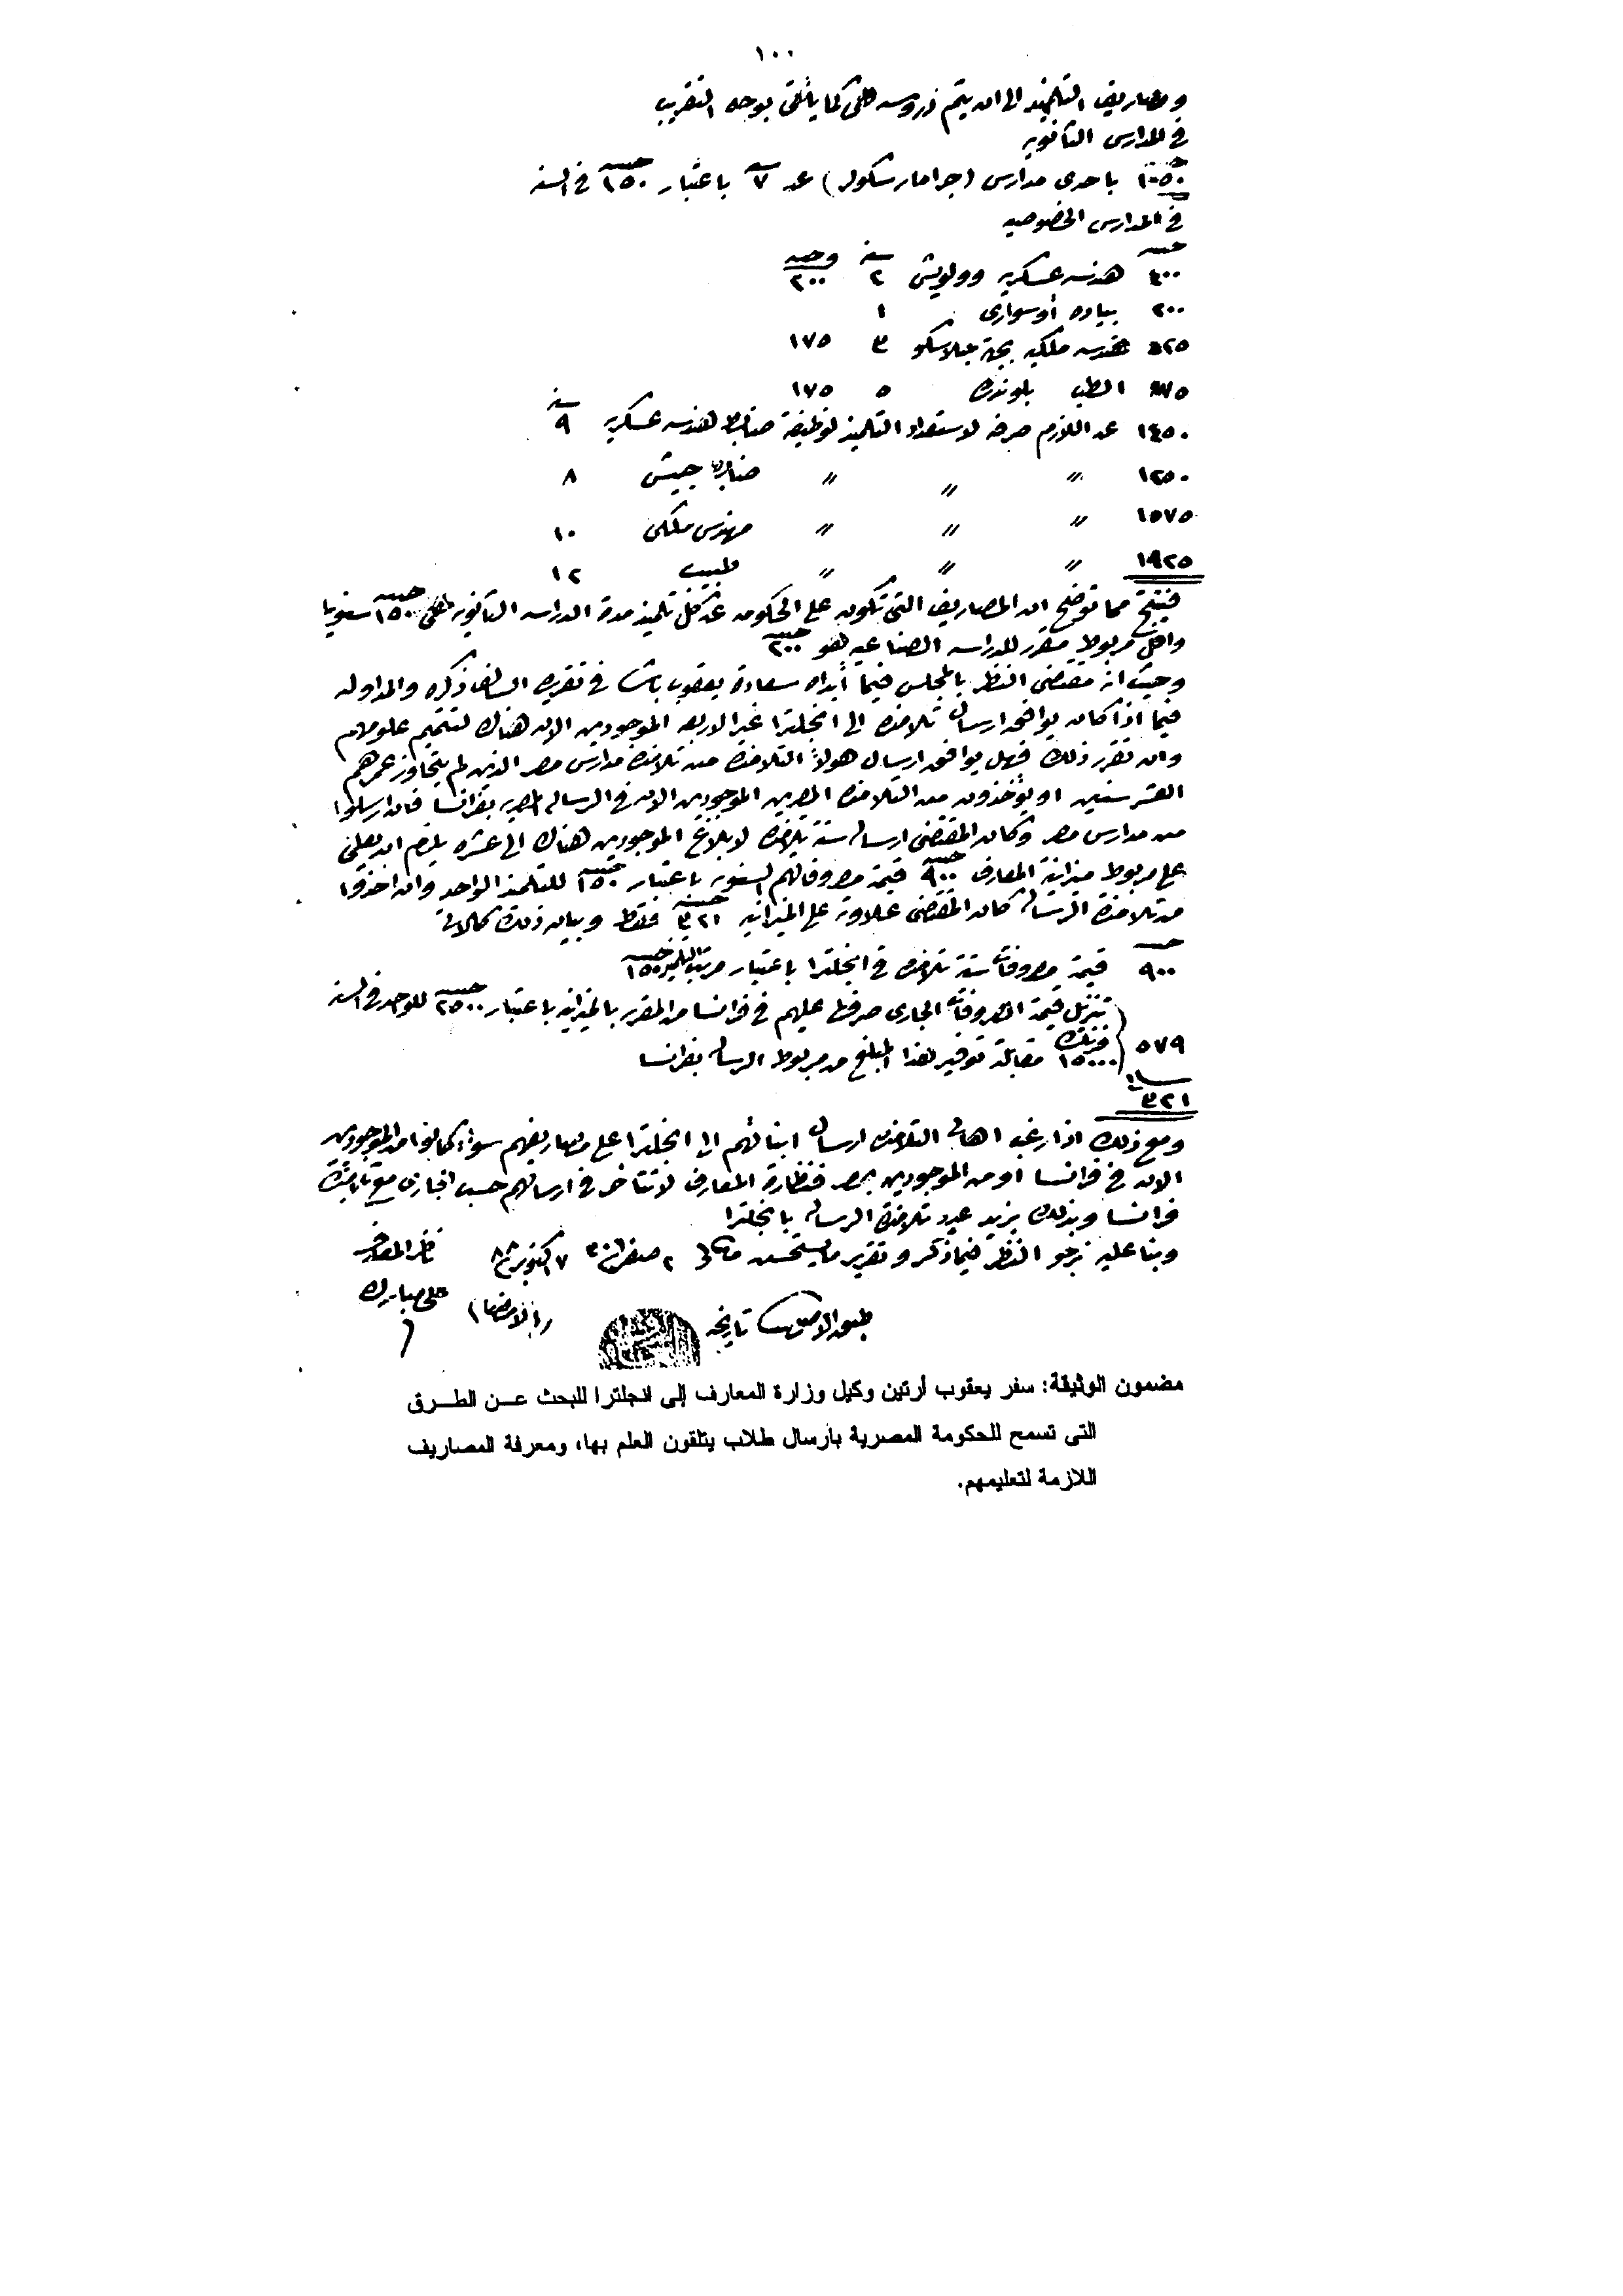 ١٠٠
ومصاريف التلميذ الى ان يتم دروسه هى كما يأتى بوجه التقريب
فى المدارس الثانويه
جنيه ١٠٥٠ باحدى مدارس (جرامار سكول) عن ٧ سنه باعتبار ١٥٠ جنيه فى السنه
فى المدارس الخصوصيه
جنيه ٤٠٠ هندسه عسكريه وولويتش ٢ سنه ٢٠٠
٢٠٠ بياده أو سوارى ١
٥٢٥ هندسه ملكيه بجهة جلاسكو ٣ ١٧٥
٨٧٥ الطب بلوندره ٥ ١٧٥
١٤٥٠ عن اللازم صرفه لاستعداد التلميذ لوظيفة ضابط هندسه عسكريه ٩ سنه
١٢٥٠ 〃 〃 〃 ضابط جيش ٨
١٥٧٥ 〃 〃 〃 مهندس ملكى ١٠
١٩٢٥ 〃 〃 〃 طبيب ١٢
فينتج مما توضح ان المصاريف التى تكون على الحكومه عن كل تلميذ مدة الدراسه الثانويه هى ١٥٠ جنيه سنويا
واقل مربوط مقرر للدراسه الصناعيه هو ٢٠٠ جنيه
وحيث انه مقتضى النظر بالمجلس فيما أبداه سعادة يعقوب باشا فى تقريره السالف ذكره والمداوله
فيما اذا كان يوافق ارسال تلامذه الى انجلترا غير الاربعه الموجودين الان هناك لتتميم علومهم
وان تقرر ذلك فهل يوافق ارسال هولاء التلامذه من تلامذة مدارس مصر الذين لم يتجاوز عمرهم
العشر سنين او يؤخذون من التلامذه المصريين الموجودين الان فى الرساله المصريه بفرانسا فان ارسلوا
من مدارس مصر وكان المقتضى ارسال ستة تلامذه لابلاغ الموجودين هناك الى عشره يلزم ان يعلى
على مربوط ميزانية المعارف ٩٠٠ جنيه قيمة مصروفاتهم السنويه باعتبار ١٥٠ جنيه للتلميذ الواحد وان اخذوا
من تلامذة الرساله كان المقتضى علاوته على الميزانيه ٣٢١ جنيه فقط وبيان ذلك كالاتى
جنيه ٩٠٠ قيمة مصروفات ستة تلامذه فى انجلترا باعتبار مرتب التلميذ ١٥٠ جنيه
تنزيل قيمة المصروفات الجارى صرفها عليهم فى فرانسا من المقرر بالميزانيه باعتبار ٢٥٠٠ للواحد فى السنه
٥٧٩ فرنك ١٥٠٠٠ مقابلة توفير هذا المبلغ من مربوط الرساله بفرانسا
٣٢١
ومع ذلك اذا رغب اهالى التلامذه ارسال ابنائهم الى انجلترا على مصاريفهم سواء كانوا من الموجودين
الان فى فرانسا او من الموجودين بمصر فنظارة المعارف لا تتأخر فى ارسالهم حسب الجارى مع تلامذة
فرانسا وبذلك يزيد عدد تلامذة الرساله بانجلترا
وبنا عليه نرجو النظر فيما ذكر وتقرير ما يستحسن ٢ صفر ٧ اكتوبر ٨٨ ناظر المعارف
(الامضا) على مبارك
طبق الاصل تاريخه
مضمون الوثيقة: سفر يعقوب أرتين وكيل وزارة المعارف إلى انجلترا للبحث عن الطرق
التى تسمح للحكومة المصرية بارسال طلاب يتلقون العلم بها، ومعرفة المصاريف
اللازمة لتعليمهم.